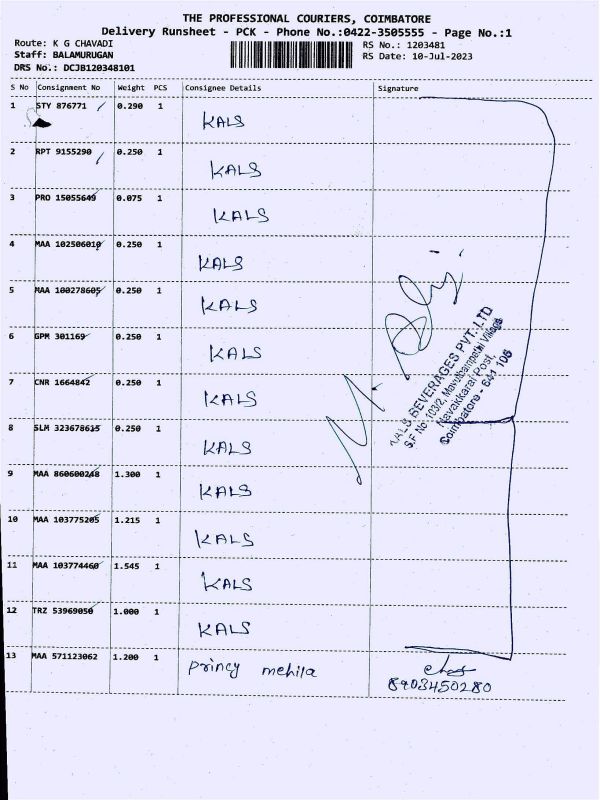 THE PROFESSIONAL COURIERS, COIMBATORE
Delivery Runsheet - PCK - Phone No.:0422-3505555 - Page No.:1
Route: K G CHAVADI
RS No.: 1203481
Staff: BALAMURUGAN
RS Date: 10-Jul-2023
DRS No.: DCJB120348101
S No Consignment No Weight PCS Consignee Details Signature
1 STY 876771 0.290 1 KALS
2 RPT 9155290 0.250 1 KALS
3 PRO 15055649 0.075 1 KALS
4 MAA 102506010 0.250 1 KALS
5 MAA 100278605 0.250 1 KALS
6 GPM 301169 0.250 1 KALS
7 CNR 1664842 0.250 1 KALS
8 SLM 323678615 0.250 1 KALS
9 MAA 860600248 1.300 1 KALS
10 MAA 103775205 1.215 1 KALS
11 MAA 103774460 1.545 1 KALS
12 TRZ 53969050 1.000 1 KALS
13 MAA 571123062 1.200 1 princy mehila
8903450280
KALS BEVERAGES PVT. LTD
S.F No. 103/2, Mavuthampathi Village
Navakkarai Post,
Coimbatore - 641 105